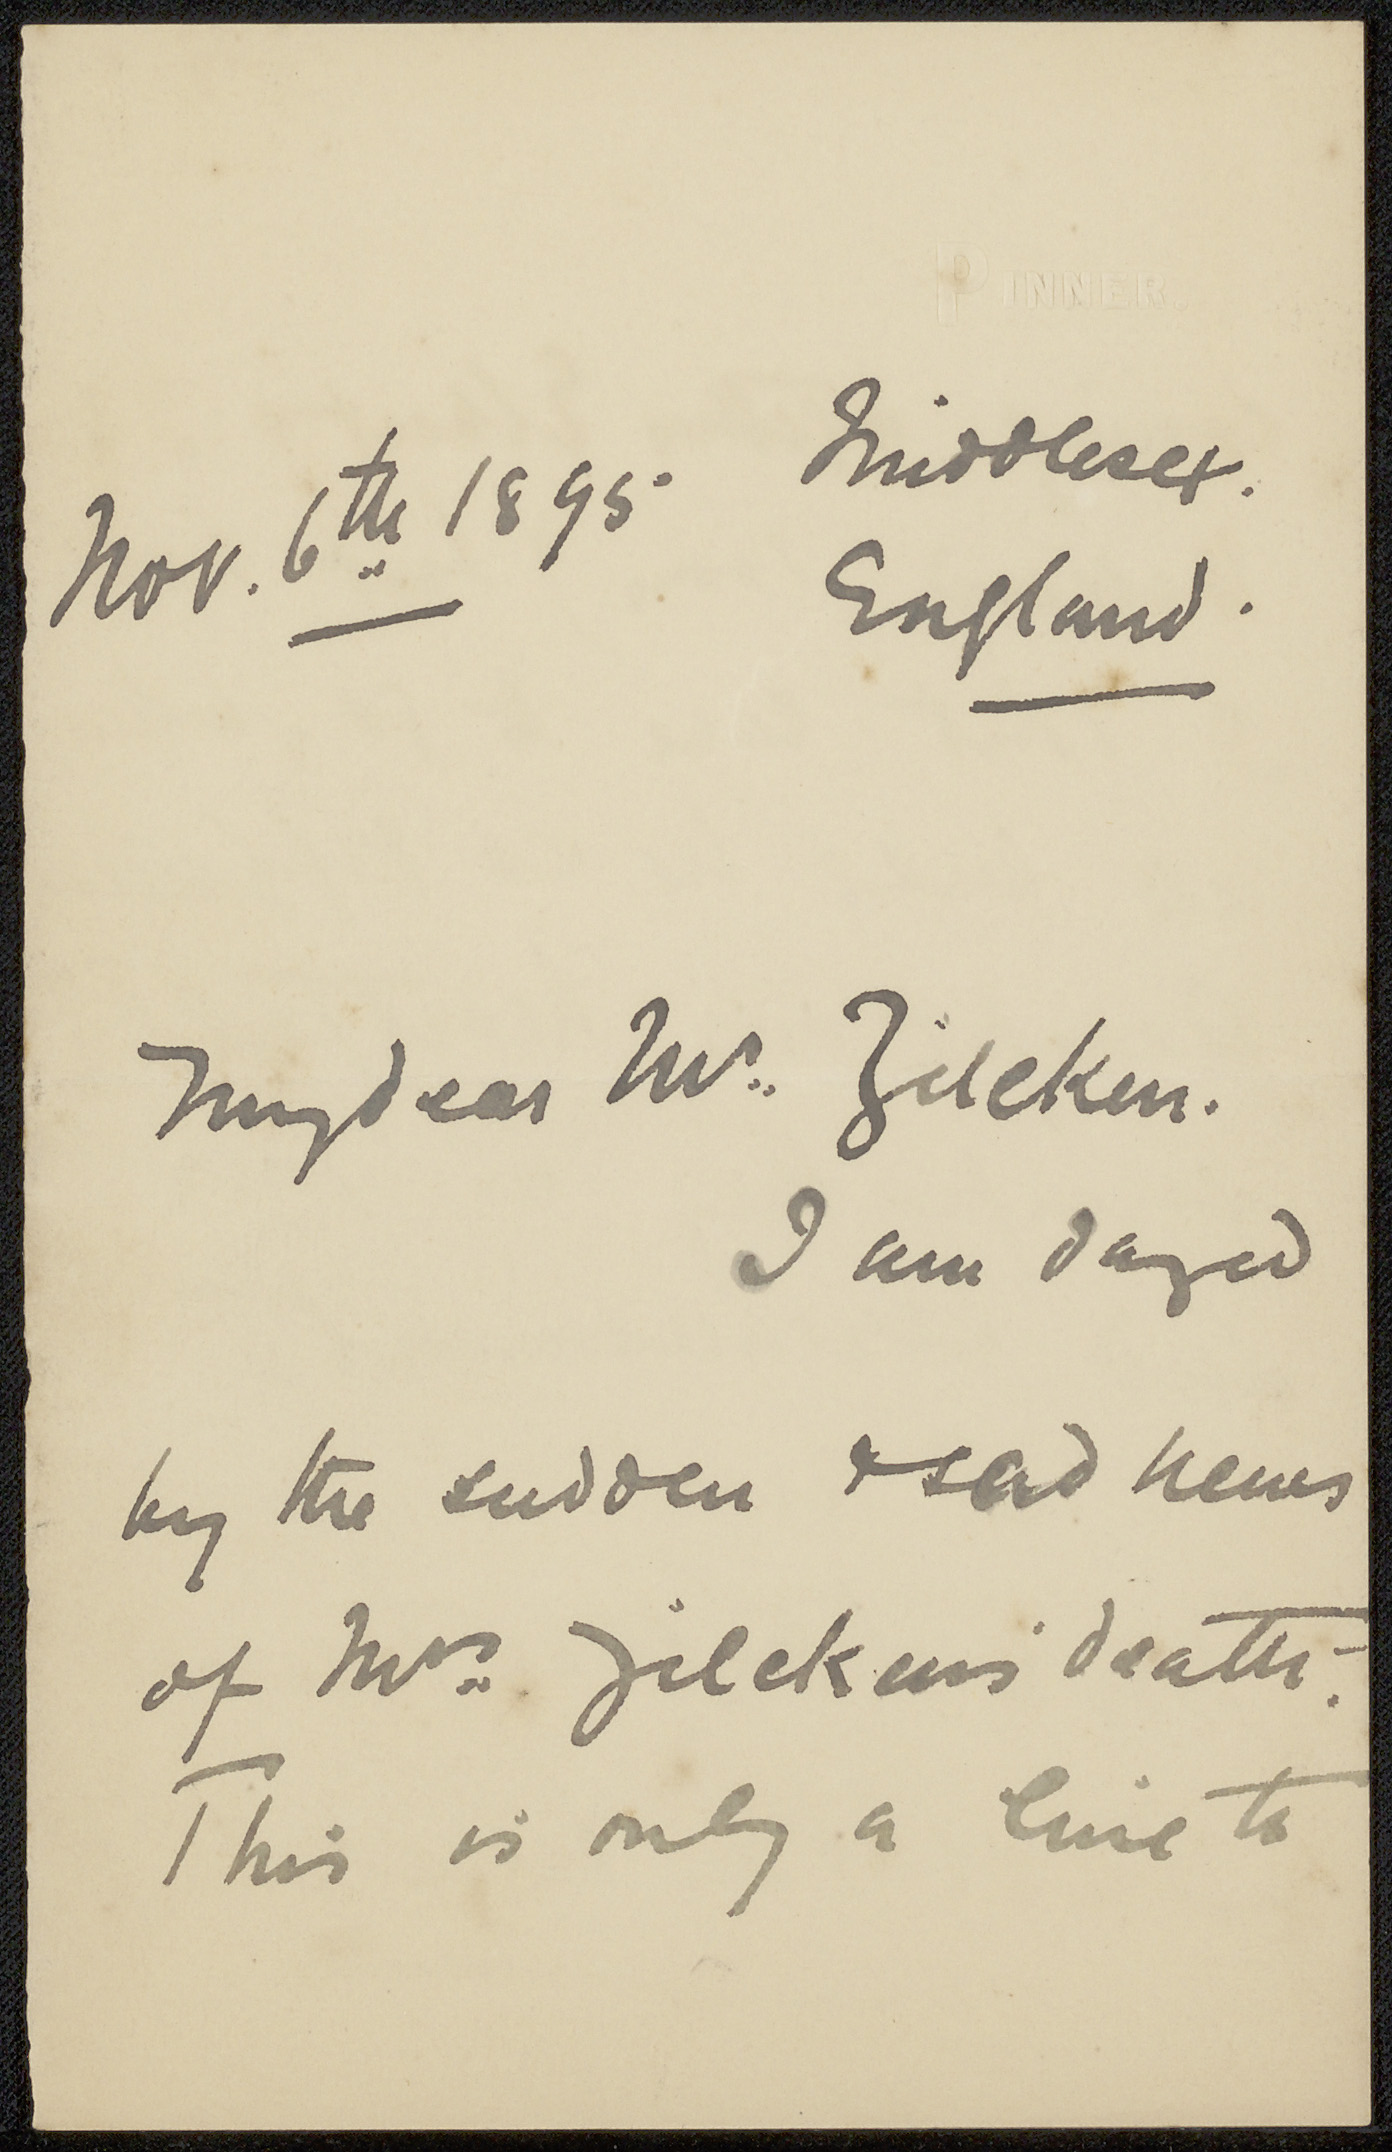 PINNER.
Middlesex.
England.
Nov. 6th 1895.
My dear Mr. Zilcken.
I am dazed
by the sudden & sad news
of Mrs. Zilcken's death.
This is only a line to